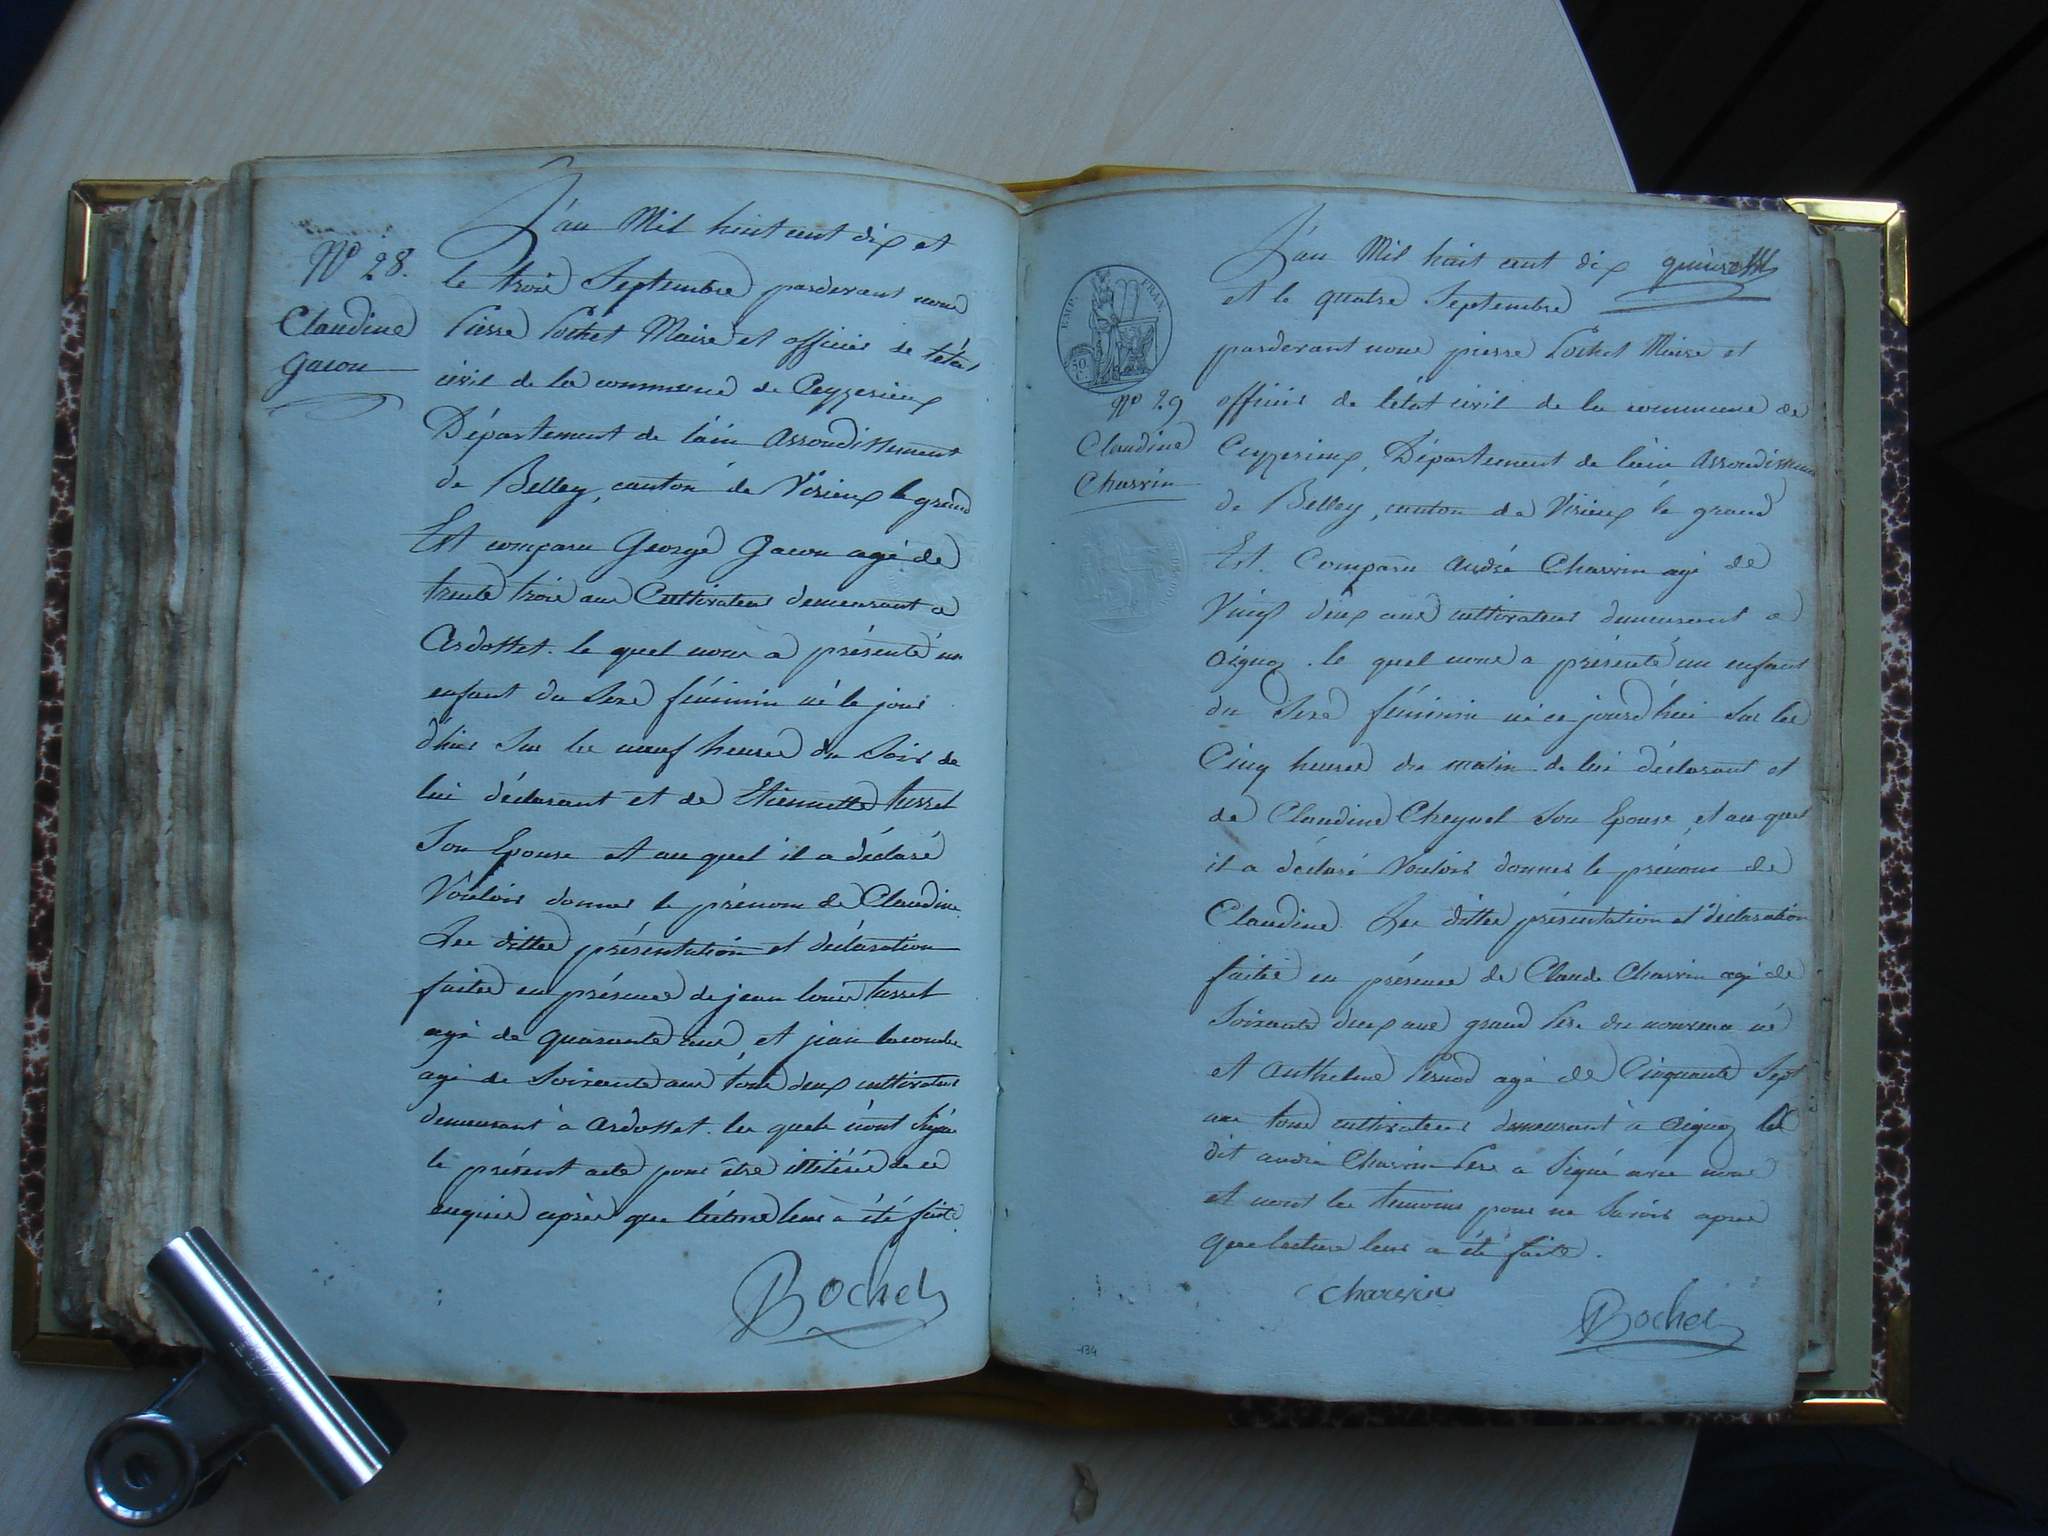 N° 28.
Claudine
gacon
L'an Mil huit cent dix et
le trois Septembre pardevant nous
Pierre Bochet Maire et officier de l'état
civil de la commune de Ceyzerieux
Département de l'ain Arrondissement
de Belley, canton de Virieux le grand
Est comparu George gacon agé de
trente trois ans Cultivateur demeurant a
Ardosset. le quel nous a présenté un
enfant du Sexe féminin né le jour
d'hier Sur les neuf heures du Soir de
lui déclarant et de Etiennette turret
Son Epouse et au quel il a déclaré
Vouloir donner le prénom de Claudine
Les dittes présentation et déclaration
faites en présence de jean louis turret
agé de quarante ans, et jean lacombe
agé de Soixante ans tous deux cultivateurs
demeurant à Ardosset. les quels n'ont Signé
le présent acte pour être illitérés de ce
enquis après que lécture leur à été faite
Bochet
EMP. FRAN.
50
C.
N° 29
Claudine
Charvin
L'an Mil huit cent dix
et le quatre Septembre
pardevant nous pierre Bochet Maire et
officier de l'état civil de la commune de
Ceyzerieux, Département de l'ain Arrondissement
de Belley, canton de Virieux le grand
Est. Comparu André Charvin agé de
Vingt deux ans cultivateur demeurant a
aignoz. le quel nous a présenté un enfant
du Sexe féminin né ce jourd'hui Sur les
Cinq heures du matin de lui déclarant et
de Claudine Cheynel Son Epouse, et au quel
il a déclaré Vouloir donner le prénom de
Claudine. Les dittes présentation et déclaration
faites en présence de Claude Charvin agé de
Soixante deux ans grand Pere du nouveau né
et Anthelme Pernod agé de Cinquante Sept
ans tous cultivateurs demeurant à aignoz le
dit andré Charvin Pere a Signé avec nous
et non les temoins pour ne Savoir apres
que lecture leur a été faite.
Charvin
Bochet
134